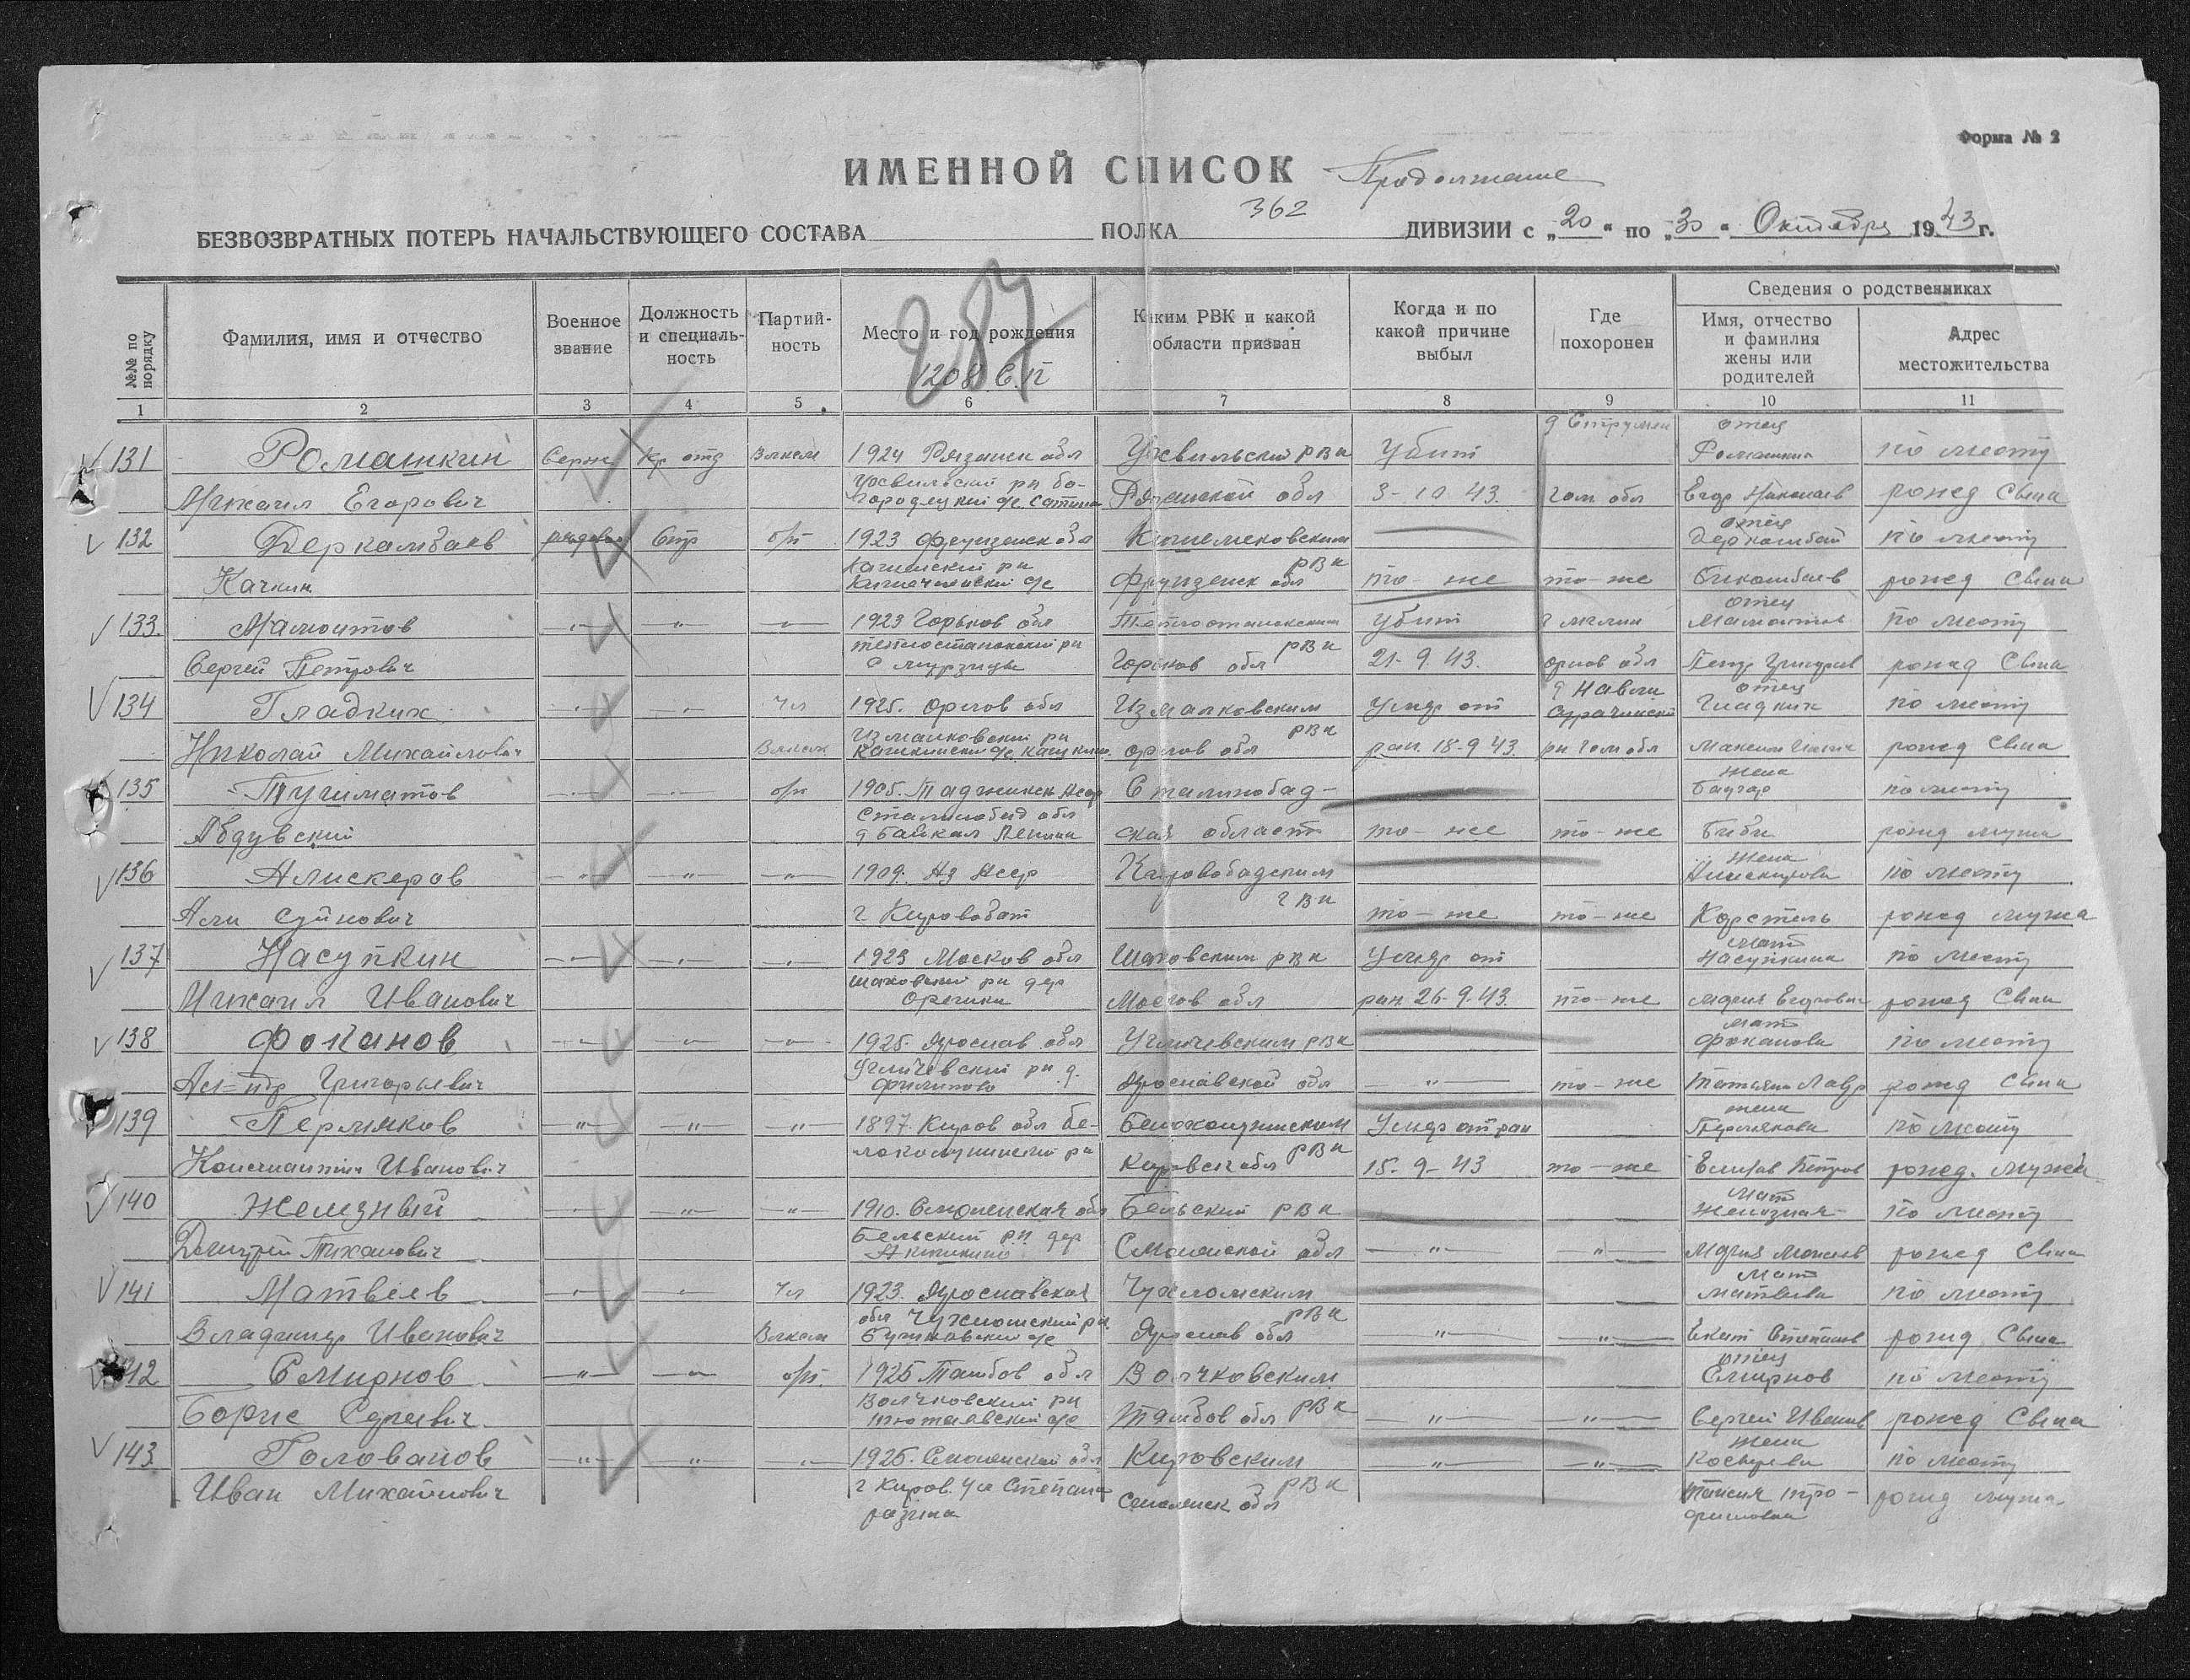 Форма № 2
ИМЕННОЙ СПИСОК Продолжение
БЕЗВОЗВРАТНЫХ ПОТЕРЬ НАЧАЛЬСТВУЮЩЕГО СОСТАВА ПОЛКА 362 ДИВИЗИИ с „20“ по „30“ Октября 1943 г.
287
№№ по порядку
Фамилия, имя и отчество
Военное звание
Должность и специаль-ность
Партий-ность
Место и год рождения
1208 С.П
Каким РВК и какой области призван
Когда и по какой причине выбыл
Где похоронен
Сведения о родственниках
Имя, отчество и фамилия жены или родителей
Адрес местожительства
1 2 3 4 5 6 7 8 9 10 11
отец
131 Ромашкин Серж Кр отд Влксм 1924 Рязанск обл РВК Убит Ромашкин по месту
Михаил Егорович Рязанской обл 3-10 43. Гом обл Егор Николаев рожд сына
отец
132 Деркамбаев рядовой Стр б/п 1923 Фрунзенск обл по месту
Качкин РВК Фрунзенск обл то-же то-же рожд сына
отец
133. Мамонтов -"- -"- -"- 1923 Горьков обл Убит Мамонтов по месту
Сергей Петрович Горьков обл РВК 21-9 43. орлов обл рожд сына
отец
134 Гладких -"- -"- Чл 1925. орлов обл Измалковским Умер от Гладких по месту
Николай Михайлович Влксм Измалковский рн орлов обл РВК ран. 18-9 43. рн Гом обл рожд сына
жена
135 Тугиматов -"- -"- б/п 1905. Таджикск Сталинобад- по месту
Абдувский Сталинобад обл ская область то-же то-же Биби рожд мужа
жена
136 Алискеров -"- -"- -"- 1909. Аз ССР Кировобадским Алискерова по месту
Али г Кировобат ГВК то-же то-же рожд мужа
мать
137 Насупкин -"- -"- -"- 1923 Москов обл Шаховским РВК Умер от Насупкина по месту
Михаил Иванович Шаховский рн дер Москов обл ран. 26-9-43. то-же Мария Егоровна рожд сына
мать
138 Фоканов -"- -"- -"- 1925. Ярослав обл Угличевским РВК Фоканова по месту
Ал-ндр Григорьевич Угличевский рн д. Филипово Ярославской обл -"- то-же Татьяна Лавр рожд сына
жена
139 Пермяков -"- -"- -"- 1897. Киров обл Бе- Белохолуницким Умер от ран Пермякова по месту
Константин Иванович лохолуницкий рн Кировск обл РВК 15-9-43 то-же Петров рожд. мужа
мать
140 Железный -"- -"- -"- 1910. Смоленская обл Бельский РВК Железная по месту
Дмитрий Тиханович Бельский рн дер Смоленской обл -"- -"- Мария рожд сына
мать
141 Матвеев -"- -"- Чл 1923. Ярославская Чухломским Матвеева по месту
Владимир Иванович Влксм обл Чухломский рн Ярослав обл РВК -"- -"- Екат Степанов рожд сына
отец
142 Смирнов -"- -"- б/п. 1925 Тамбов обл Волчковским Смирнов по месту
Борис Сергеевич Волчковский рн Тамбов обл РВК -"- -"- Сергей Иванов рожд сына
жена
143 Голованов -"- -"- -"- 1925. Смоленской обл Кировским -"- -"- по месту
Иван Михайлович г Киров. ул Степана Разина Смоленск обл РВК Таисия Тро-фимовна рожд мужа.